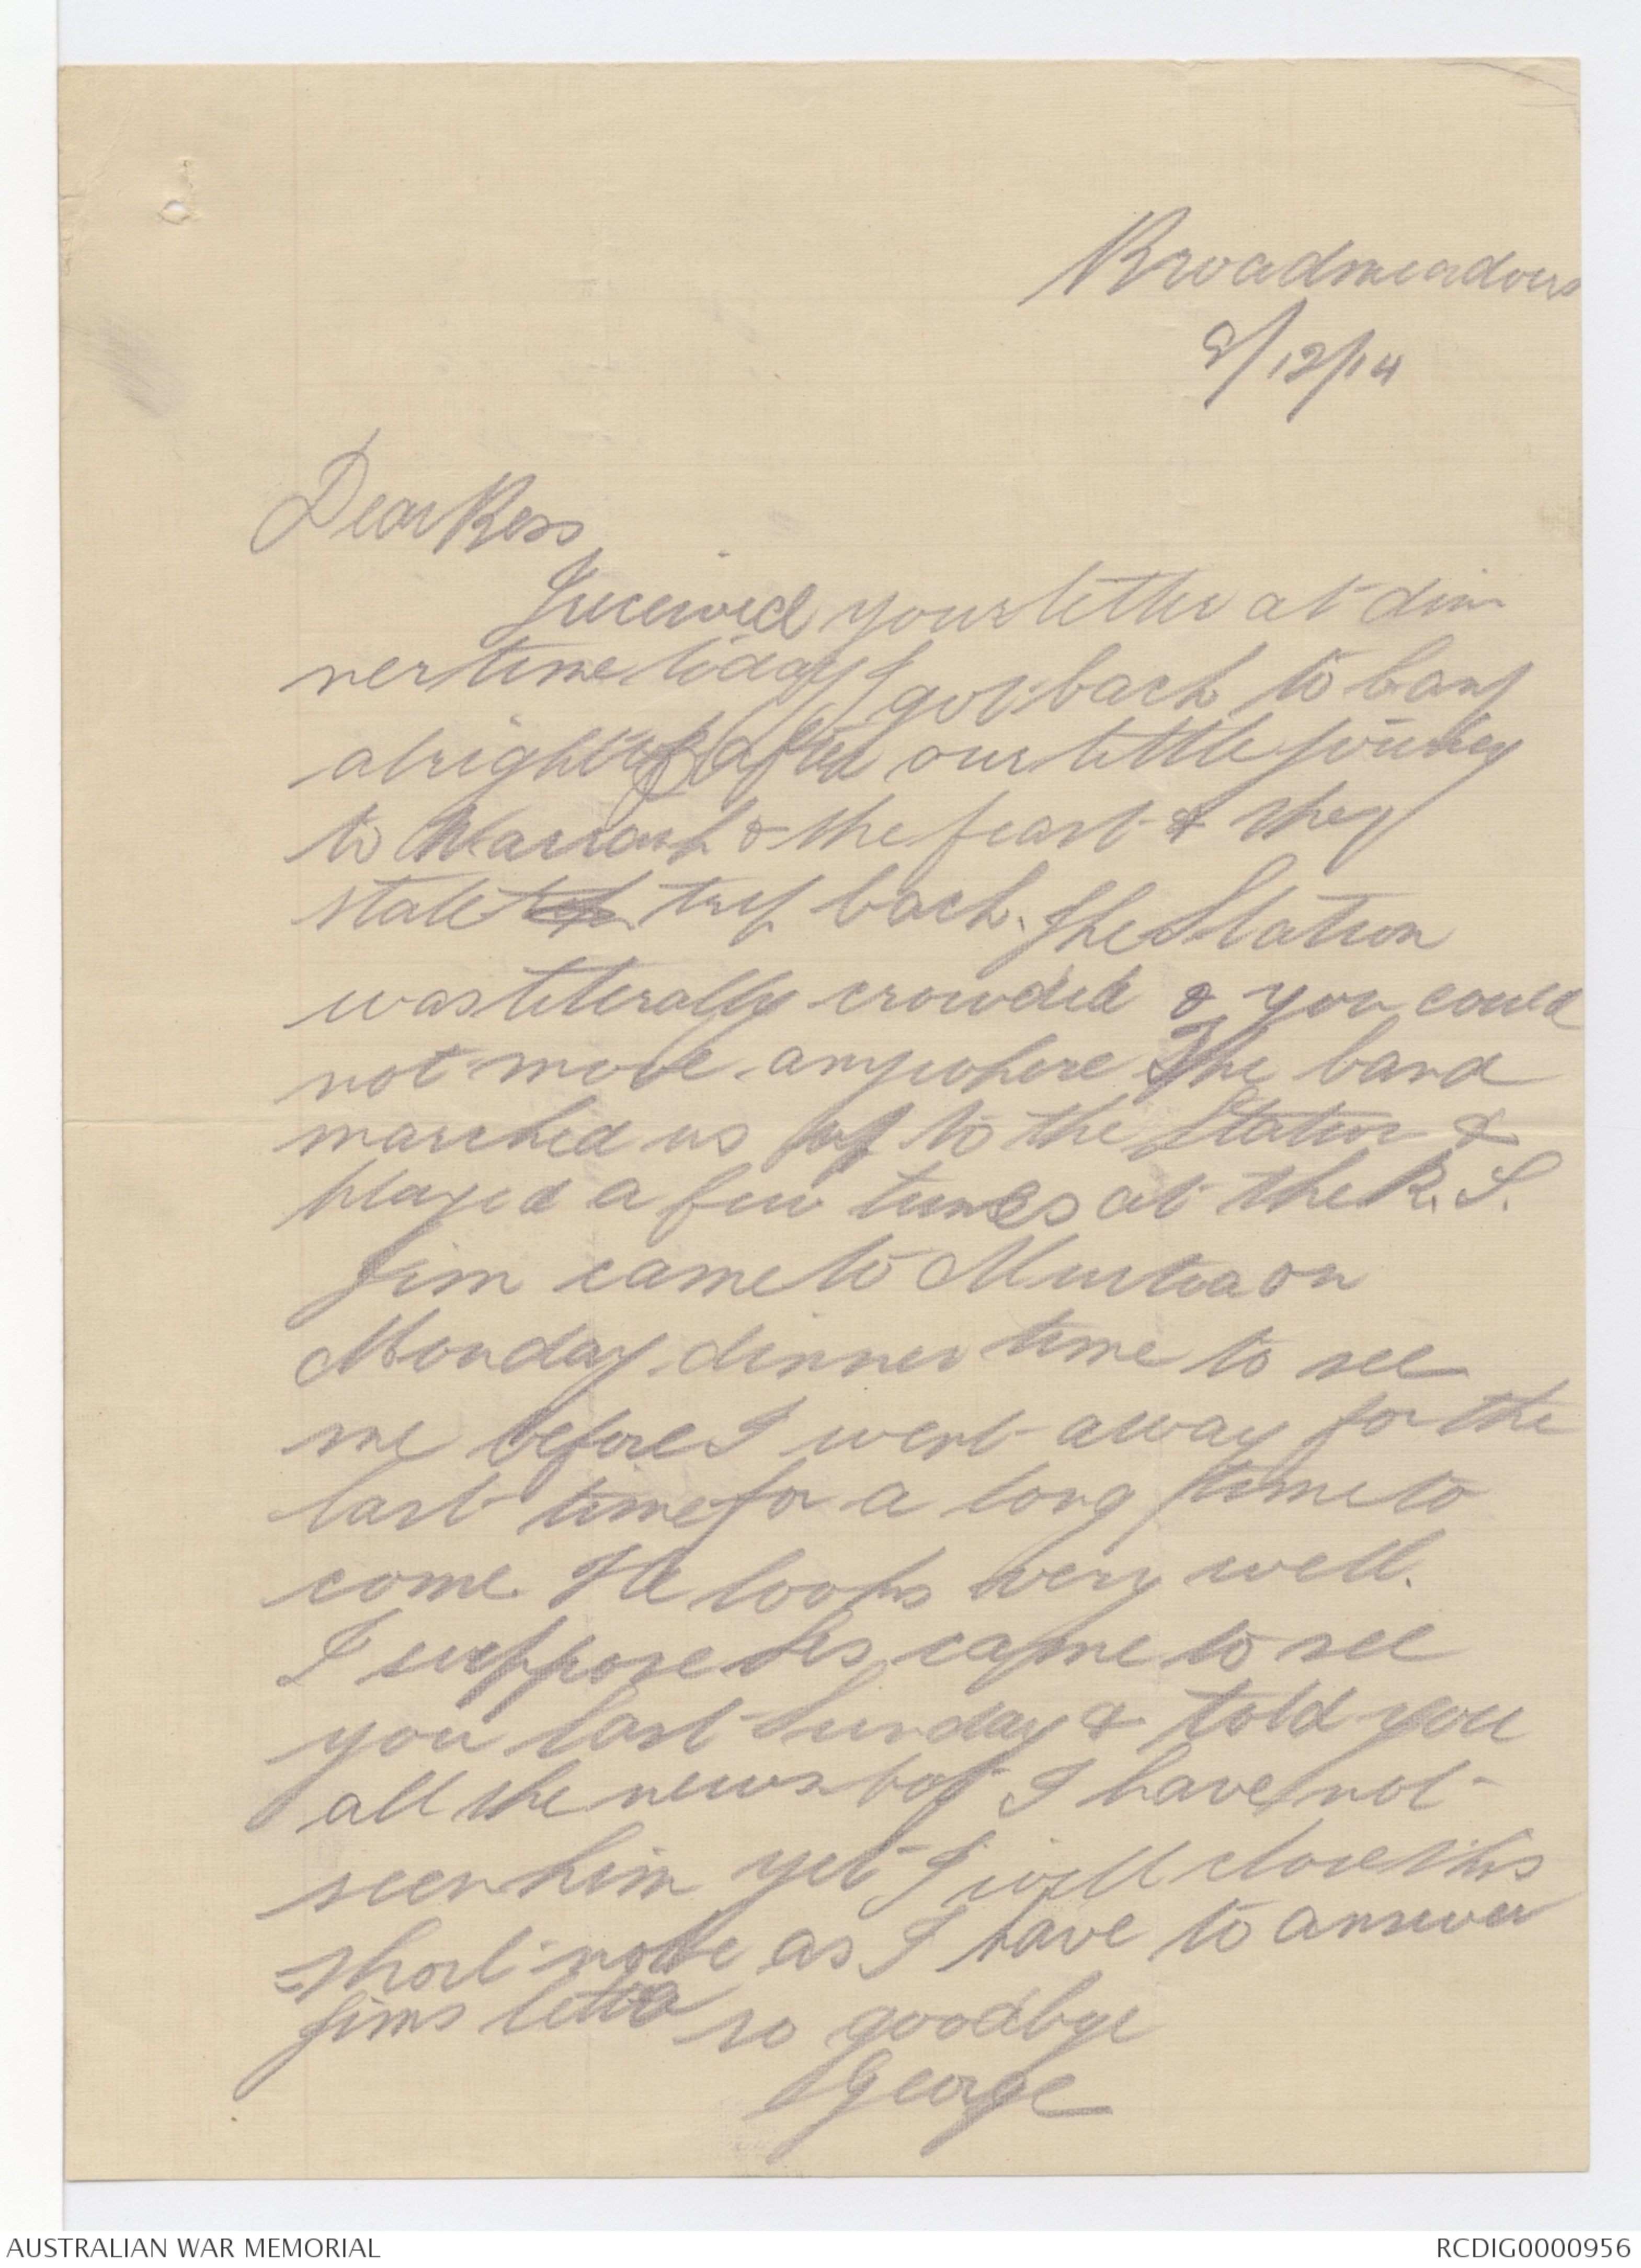 Broadmeadows
9/12/14
Dear Bess
I received your letter at din
ner time today I got back to camp
alright after our little journey
to & the feast & they
state trip back. The Station
was literally crowded & you could
not move anywhere The band
marched us up to the Station &
played a few tunes at the R. S.
Jim came to Murtoa on
Monday dinner time to see
me before I went away for the
last time for a long time to
come. He looks very well.
I suppose Les came to see
you last Sunday & told you
all the news but I have not
seen him yet I will close this
short note as I have to answer
Jims letter so goodbye
George
AUSTRALIAN WAR MEMORIAL
RCDIG0000956